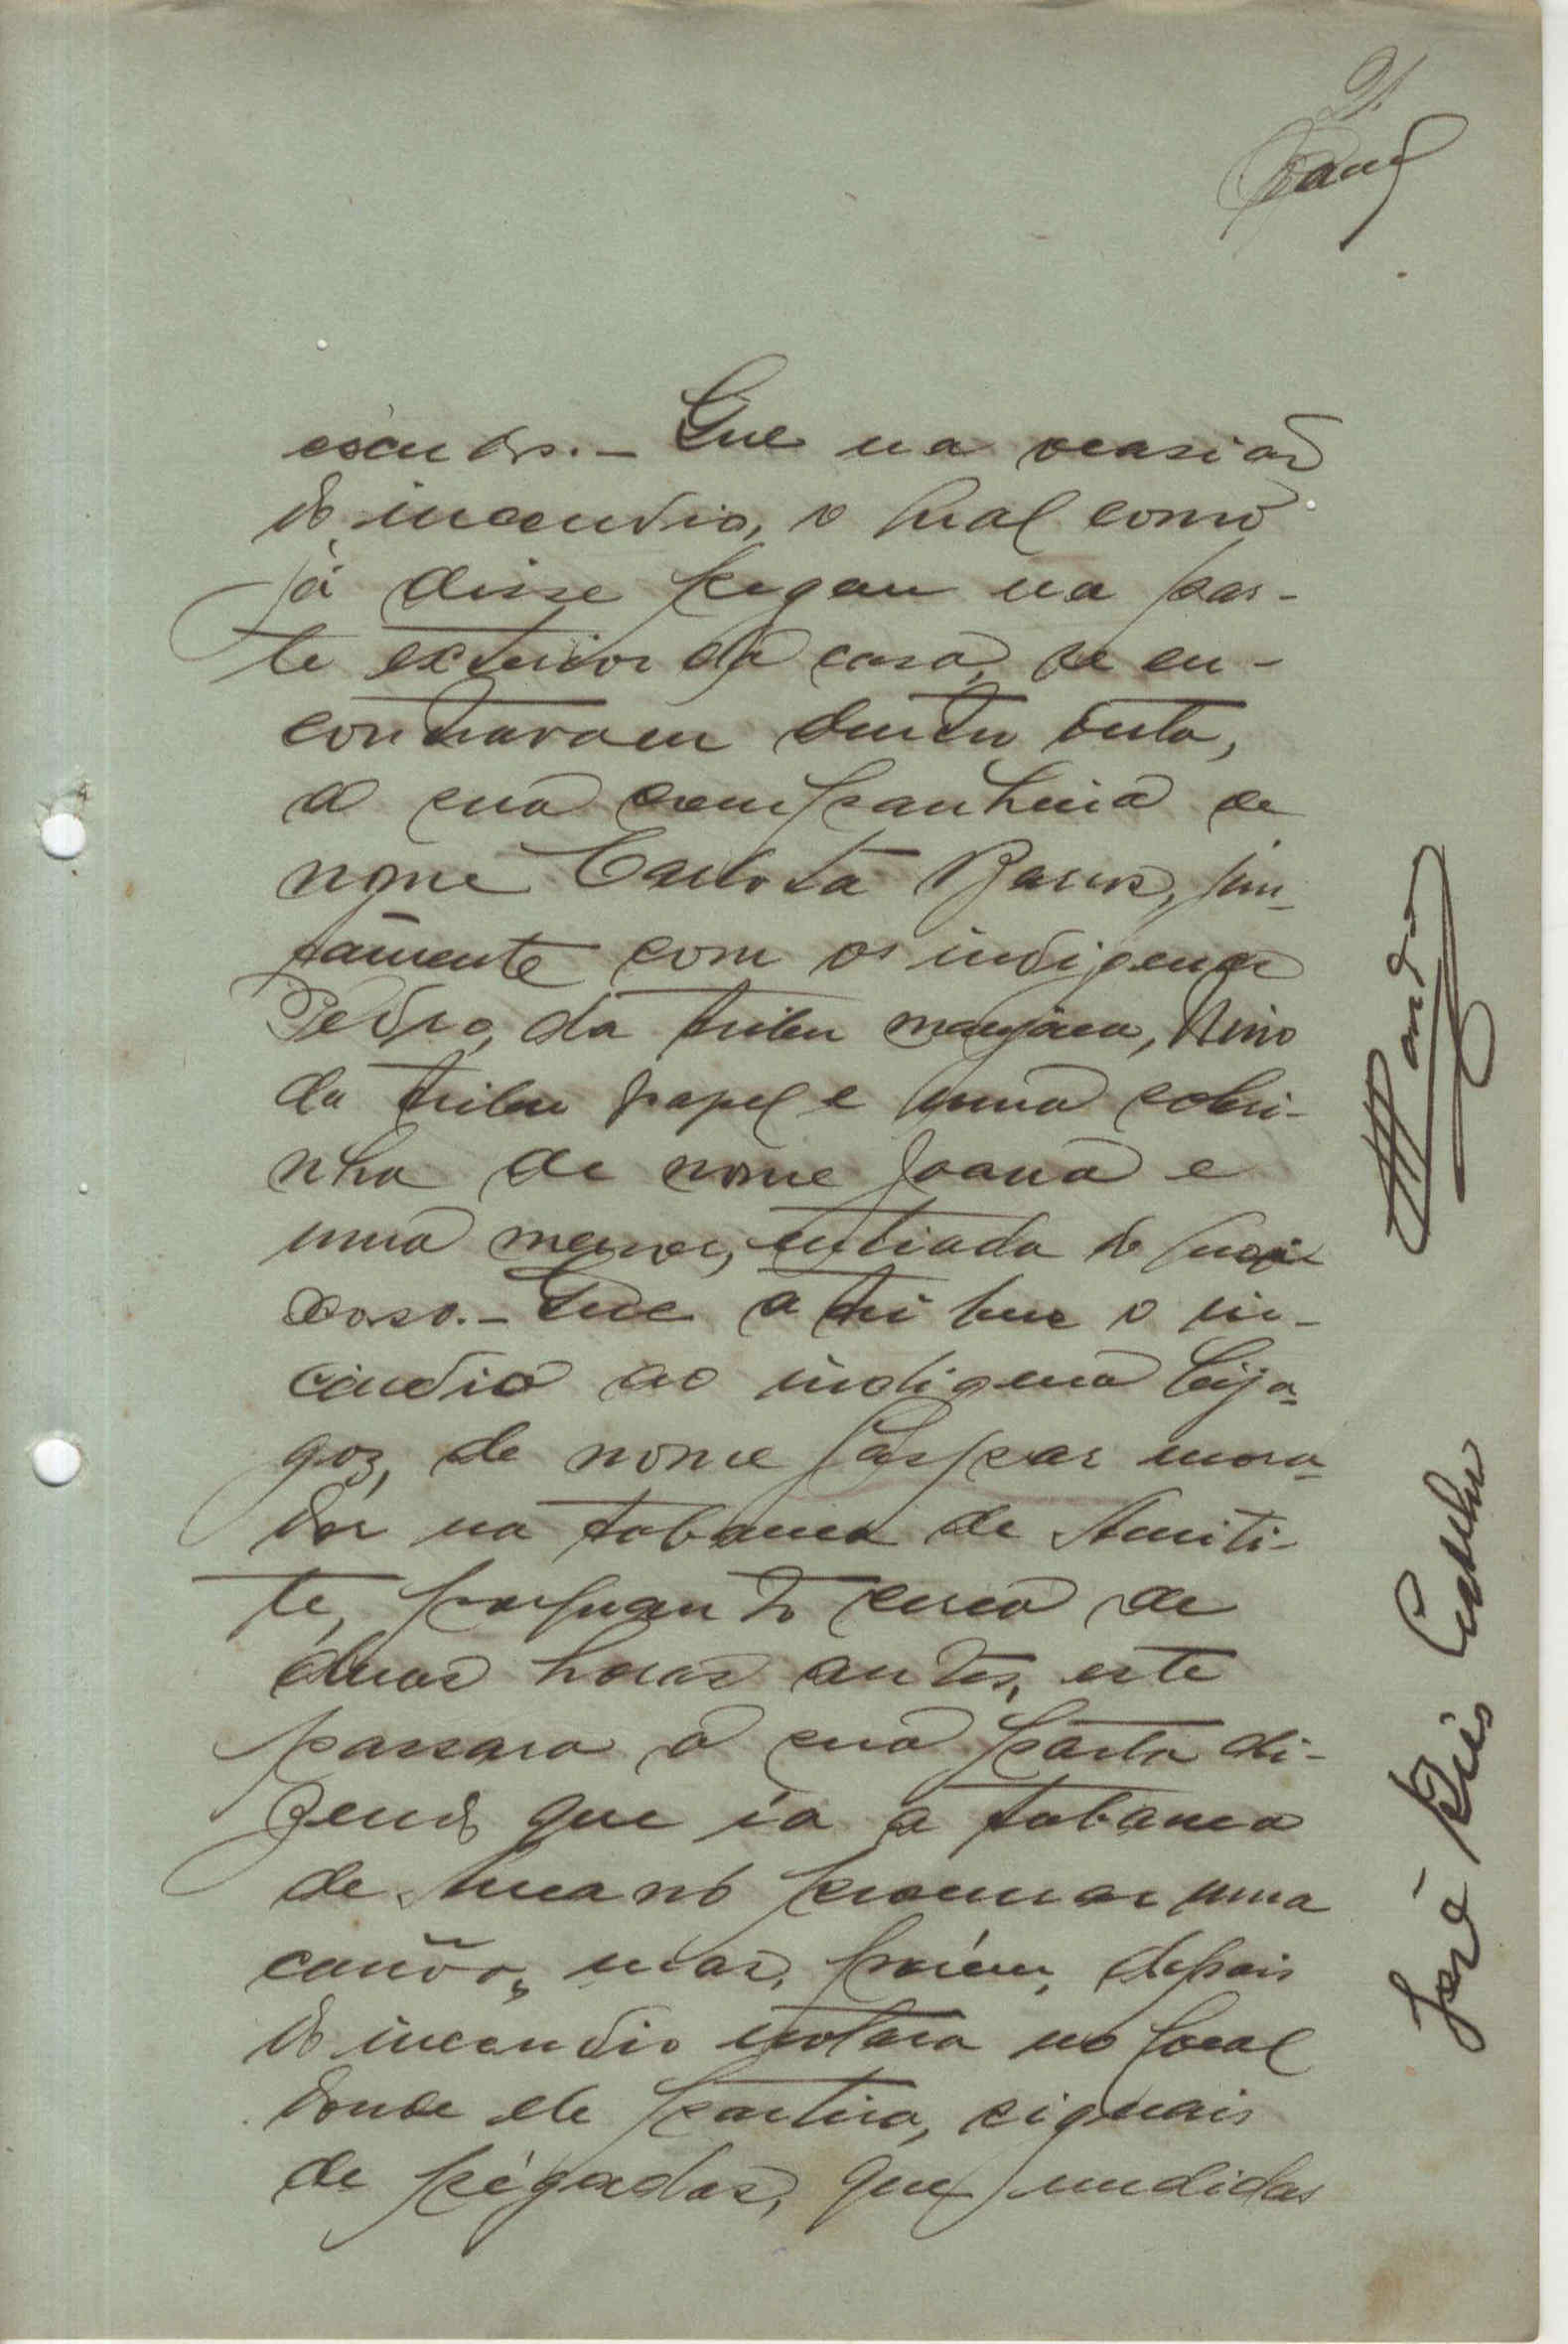 escudos.- Que na ocasião
do incendio, o qual como
já disse pegou na par-
te exterior da casa, se en-
contravam dentro desta,
a sua companheira de
nome Carlota Barros, jun-
tamente com os indigenas
Pedro, da tribu mancanha, Nino
da tribu papel e uma sobri-
nha de nome Joana e
uma menor, entiada do
Que atribue o in-
cendio ao indigena bija-
goz, de nome Gaspar mora-
dor na tabanca de
te, porquanto cerca de
duas horas antes, este
passara á sua porta di-
zendo que ia a tabanca
de procurar uma
canôa, mas, porém, depois
do incendio notara no local
donde ele partira, signais
de pégadas, que medidas
José Reis